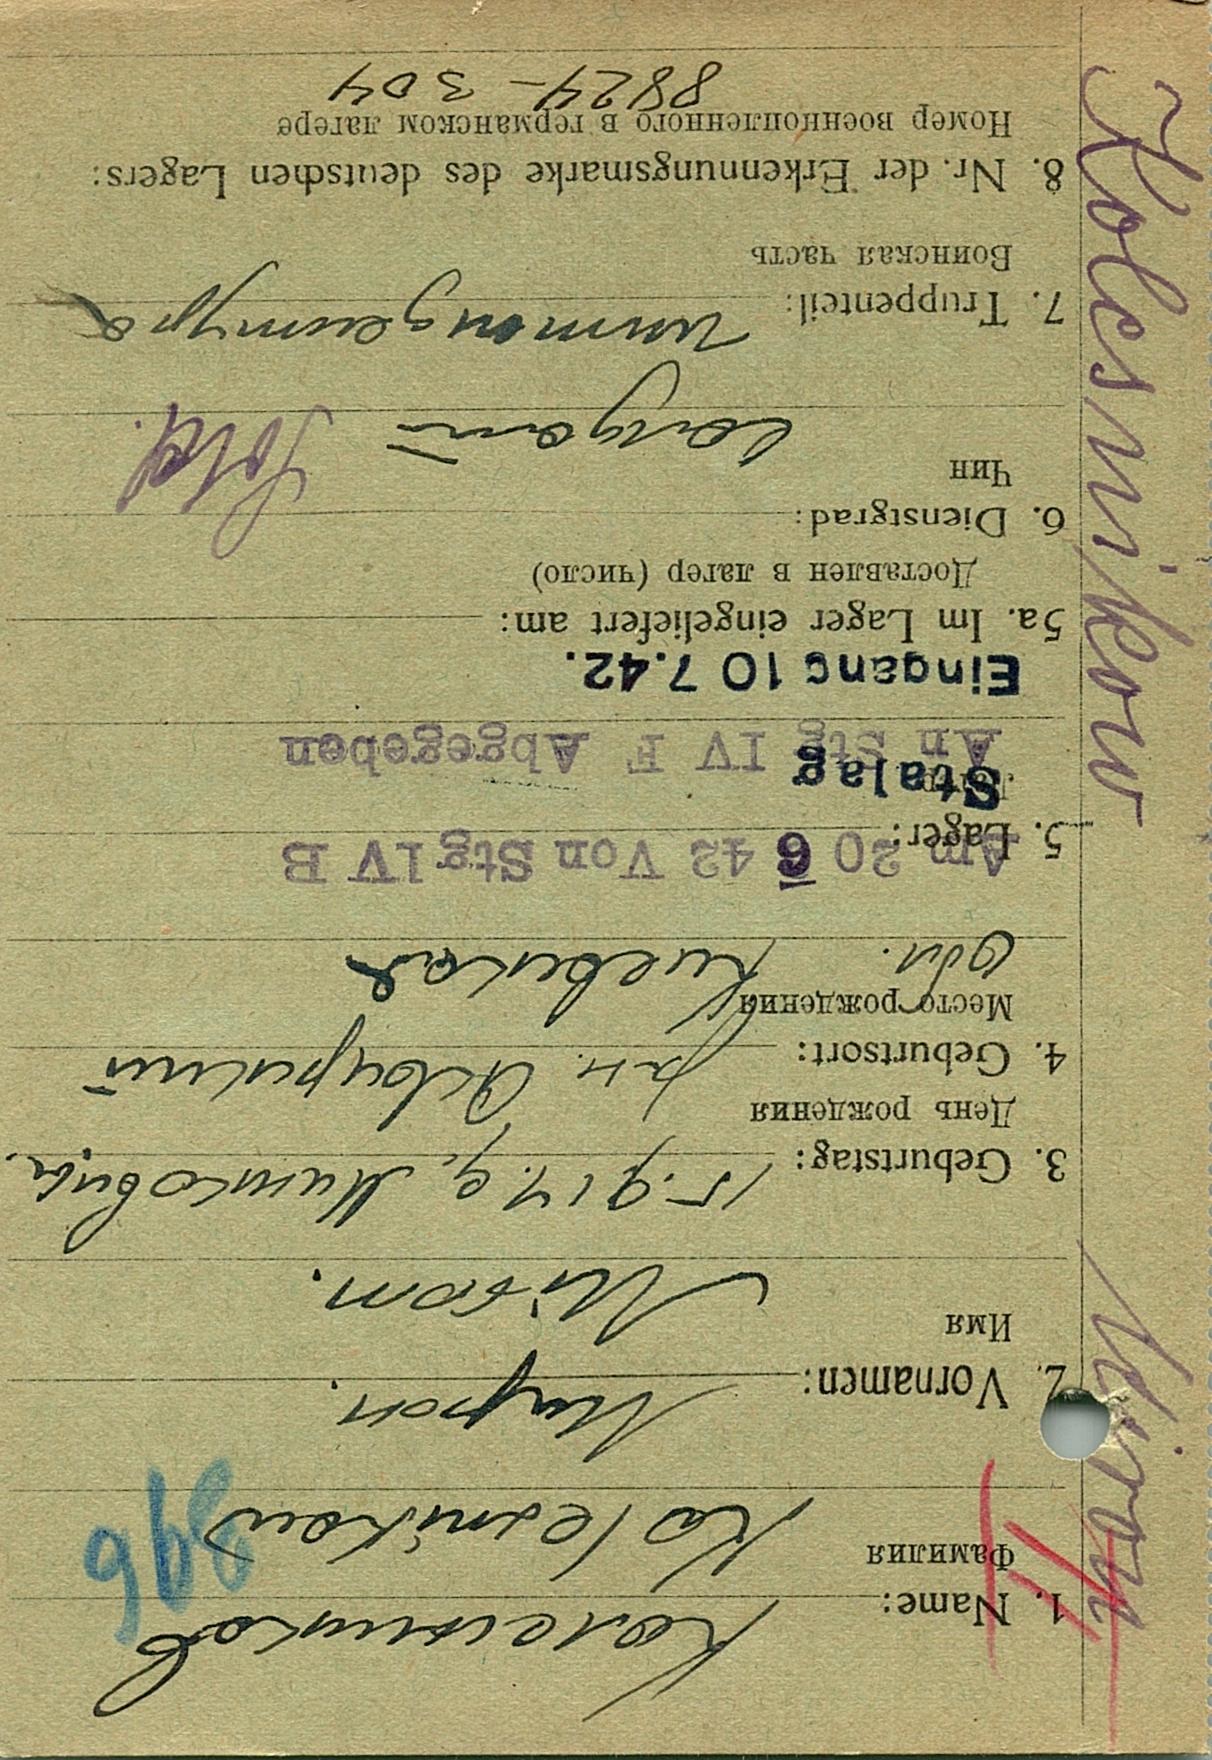 Kolesnikow Miron
1. Name: Колесников
Фамилия
Kolesnikow
896
2. Vornamen: Мирон.
Имя
Miron.
3. Geburtstag: 15.9 14.
День рождения
4. Geburtsort:
Место рождения
Обл. Киевская
Am 20 6 42 Von Stg IV B
5. Lager:
Stalag
An Stg IV F Abgegeben
Eingang 10 7.42.
5a. Im Lager eingeliefert am:
Доставлен в лагер (число)
6. Dienstgrad:
Чин
солдат Sold.
7. Truppenteil:
Воинская часть
8. Nr. der Erkennungsmarke des deutschen Lagers:
Номер военнопленного в германском лагере
8824 - 304